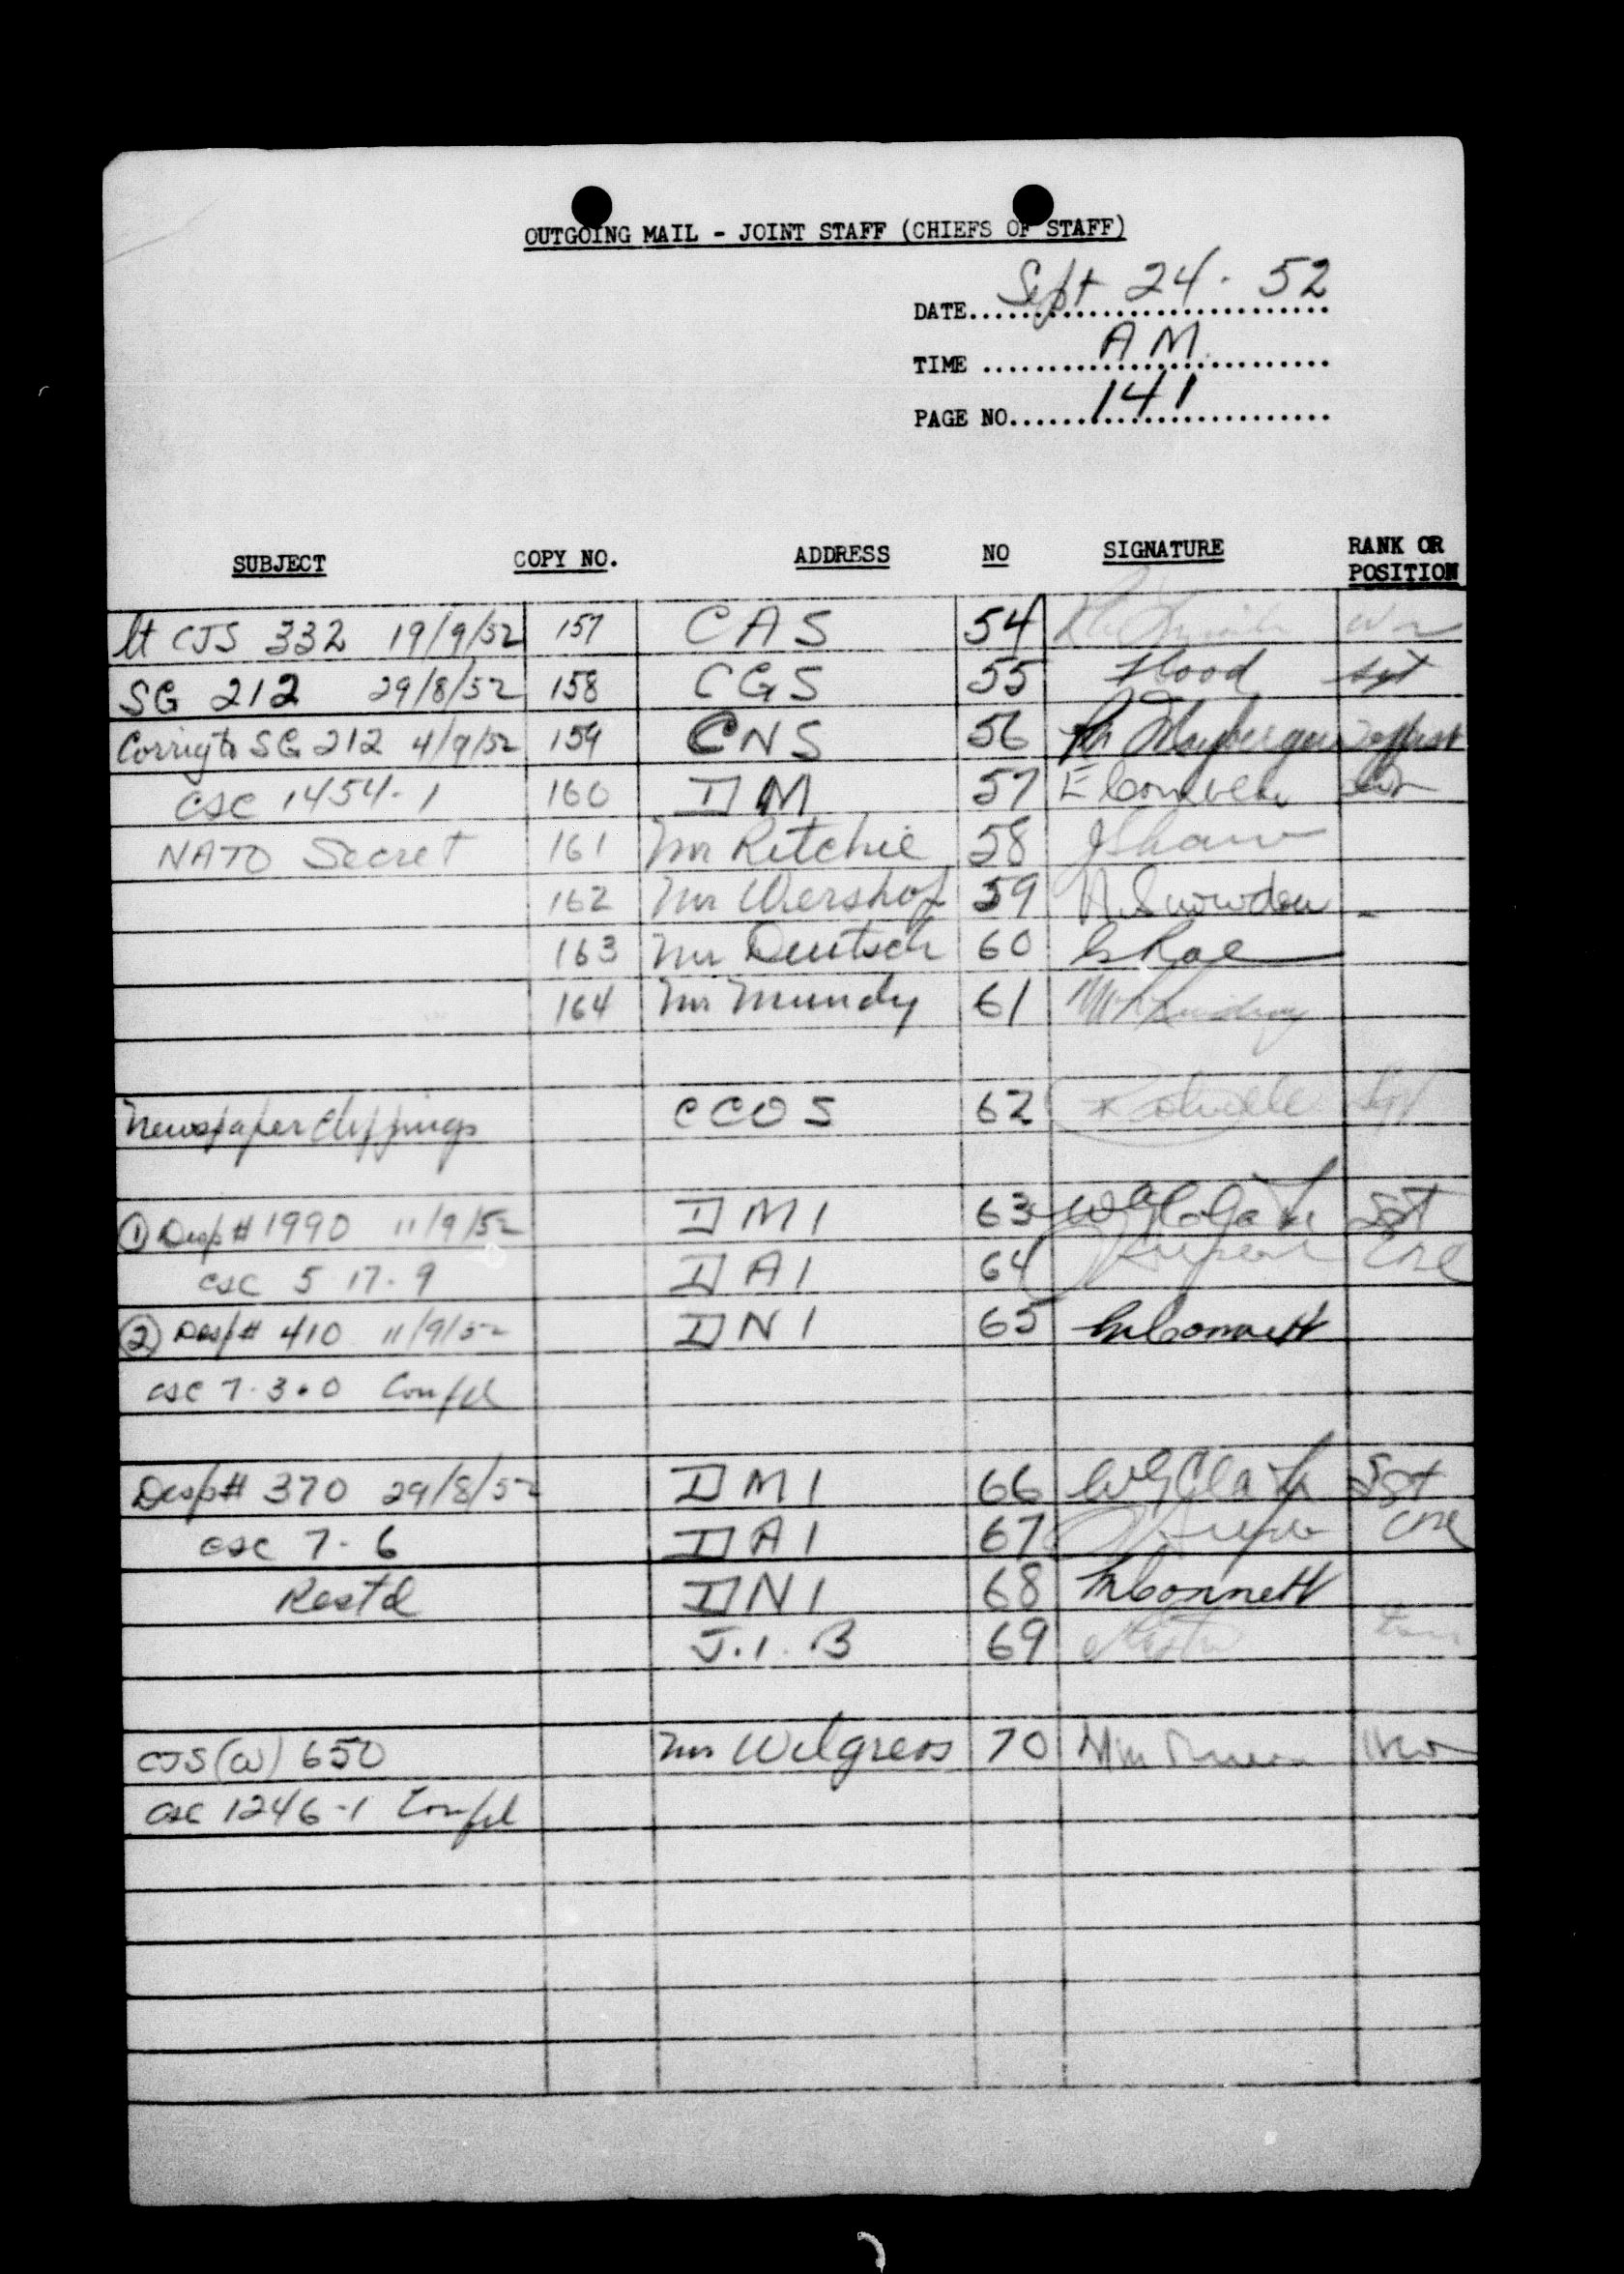 OUTGOING MAIL - JOINT STAFF (CHIEFS OF STAFF)
DATE Sept 24 - 52
TIME AM
PAGE NO. 141
SUBJECT COPY NO. ADDRESS NO SIGNATURE RANK OR POSITION
lt CJS 332 19/9/52 157 CAS 54
SG 212 29/8/52 158 CGS 55 Hood Sgt
Corrig to SG 212 4/9/52 159 CNS 56
CSC 1454-1 160 DM 57 E
NATO Secret 161 Mr Ritchie 58 J Shaw
162 Mr Wershof 59 Snowdon
163 Mr Deutsch 60 Rae
164 Mr Mundy 61
Newspaper Clippings CCOS 62 Sgt
① Desp # 1990 11/9/52 DMI 63 Sgt
CSC 5 17-9 DAI 64 Cpl
② Desp # 410 11/9/52 DNI 65 McConnett
CSC 7-3-0 Confd
Desp # 370 29/8/52 DMI 66 WG Clark Sgt
CSC 7-6 DAI 67 Cpl
Restd DNI 68 McConnett
J.I.B 69
CJS(W) 650 Mr Wilgress 70
CSC 1246-1 Confd